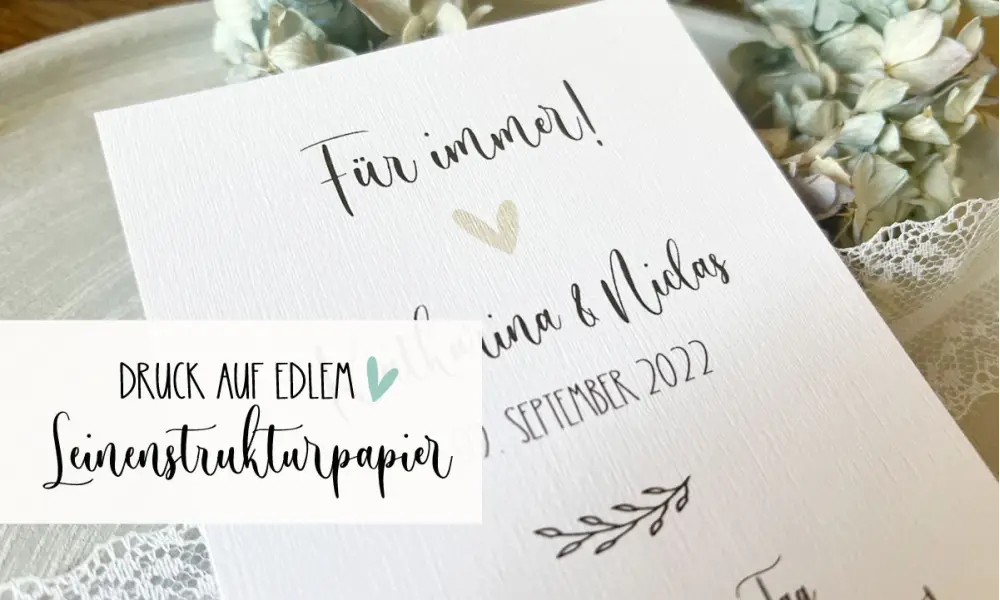 Für immer!
Katharina & Niclas
. SEPTEMBER 2022
DRUCK AUF EDLEM
Leinenstrukturpapier
Tag